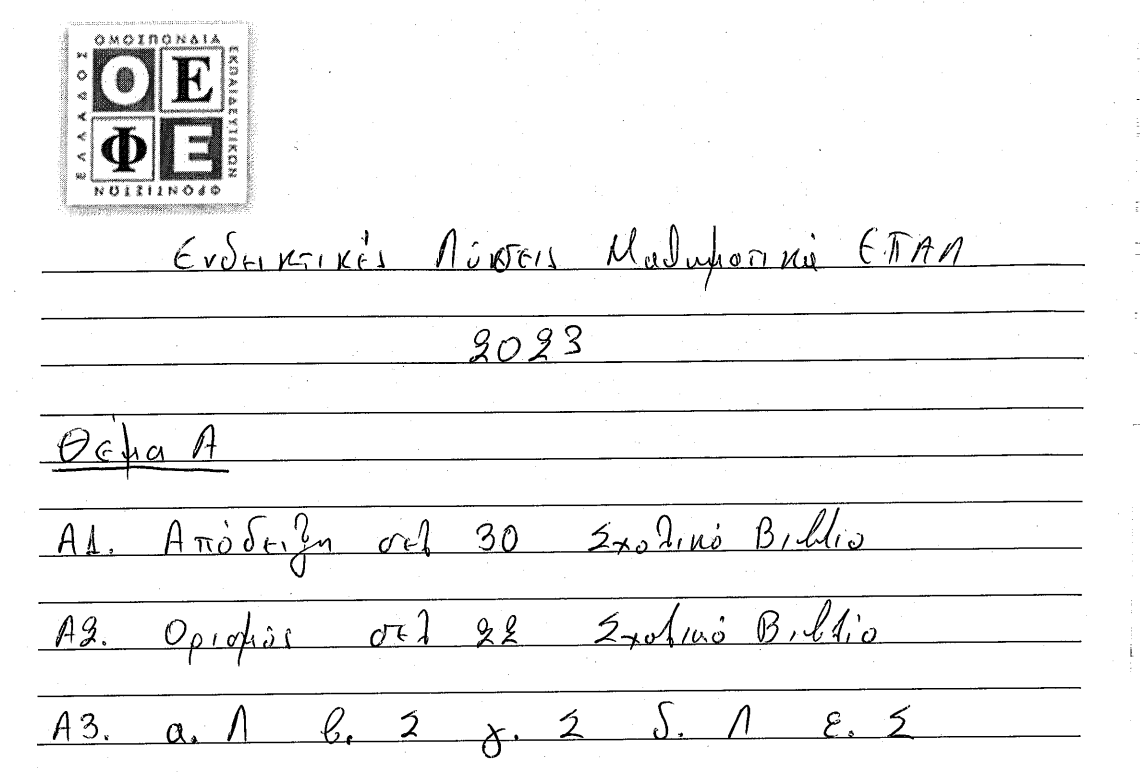 ΟΜΟΣΠΟΝΔΙΑ
ΕΚΠΑΙΔΕΥΤΙΚΩΝ
ΦΡΟΝΤΙΣΤΩΝ
ΕΛΛΑΔΟΣ
Ο Ε
Φ Ε
Ενδεικτικές Λύσεις Μαθηματικά ΕΠΑΛ
2023
Θέμα Α
Α1. Απόδειξη σελ 30 Σχολικό Βιβλίο
Α2. Ορισμός σελ 22 Σχολικό Βιβλίο
Α3. α. Λ β. Σ γ. Σ δ. Λ ε. Σ